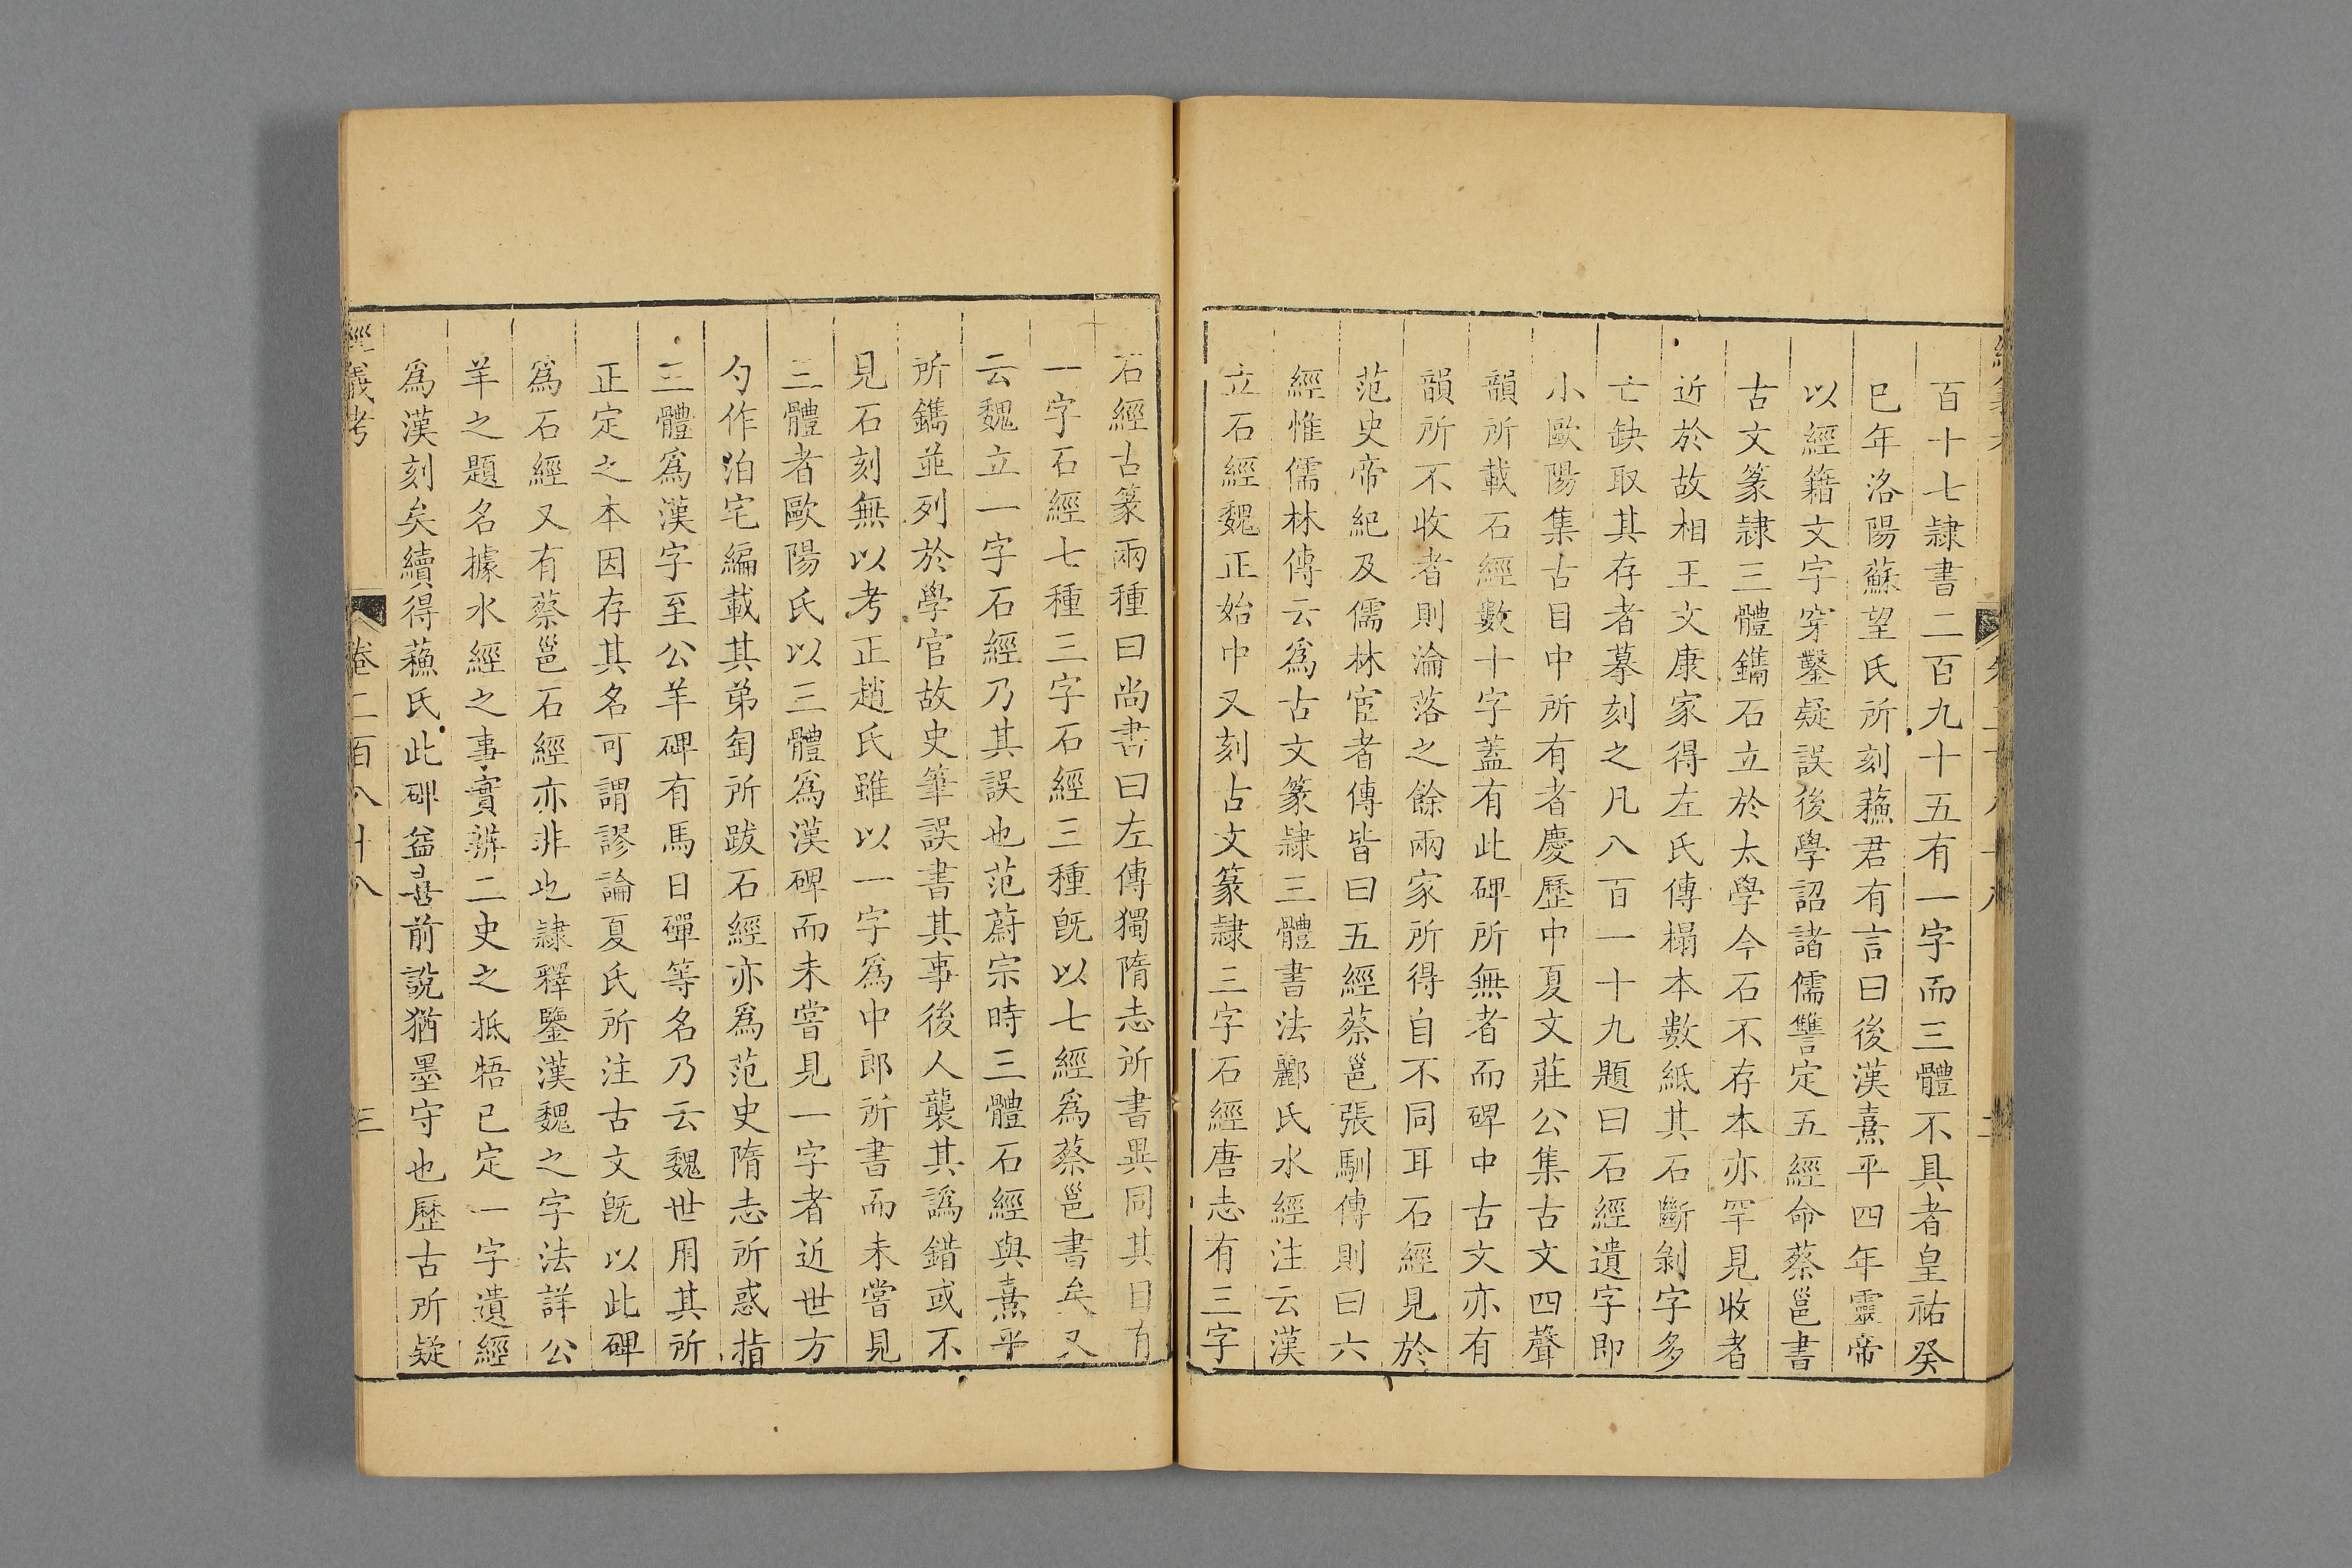 百十七隷書二百九十五有一字而三體不具者皇祐癸
巳年洛陽蘇望氏所刻蘓君有言曰後漢熹平四年靈帝
以經籍文字穿鑿疑誤後學詔諸儒讐定五經命蔡邕書
古文篆隷三體鐫石立於太學今石不存本亦罕見收者
近於故相王文康家得左氏傳榻本數紙其石斷剝字多
亡缺取其存者摹刻之凡八百一十九題曰石經遺字即
小歐陽集古目中所有者慶歷中夏文莊公集古文四聲
韻所載石經數十字蓋有此碑所無者而碑中古文亦有
韻所不收者則淪落之餘兩家所得自不同耳石經見於
范史帝紀及儒林宦者傳皆曰五經蔡邕張馴傳則曰六
經惟儒林傳云爲古文篆隷三體書法酈氏水經注云漢
立石經魏正始中又刻古文篆隷三字石經唐志有三字
石經古篆兩種曰尚書曰左傳獨隋志所書異同其目有
一字石經七種三字石經三種旣以七經爲蔡邕書矣又
云魏立一字石經乃其誤也范蔚宗時三體石經與熹平
所鐫並列於學官故史筆誤書其事後人襲其譌錯或不
見石刻無以考正趙氏雖以一字爲中郎所書而未嘗見
三體者歐陽氏以三體爲漢碑而未嘗見一字者近世方
勺作泊宅編載其弟匋所跋石經亦爲范史隋志所惑指
三體爲漢字至公羊碑有馬日磾等名乃云魏世用其所
正定之本因存其名可謂謬論夏氏所注古文旣以此碑
爲石經又有蔡邕石經亦非也隷釋鑒漢魏之字法詳公
羊之題名據水經之事實辨二史之抵牾已定一字遺經
爲漢刻矣續得蘓氏此碑益喜前說猶墨守也歷古所疑
經義考 卷二百八十八 三